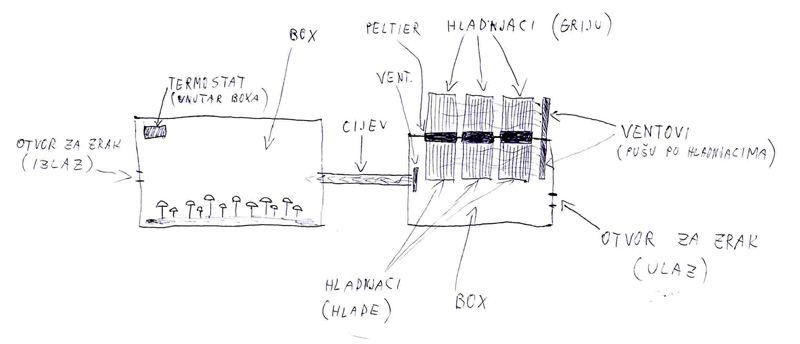 BOX
PELTIER
HLADNJACI (GRIJU)
TERMOSTAT
(UNUTAR BOXA)
VENT.
CIJEV
OTVOR ZA ZRAK
(IZLAZ)
BOX
VENTOVI
(PUŠU PO HLADNJACIMA)
OTVOR ZA ZRAK
(ULAZ)
HLADNJACI
(HLADE)
BOX